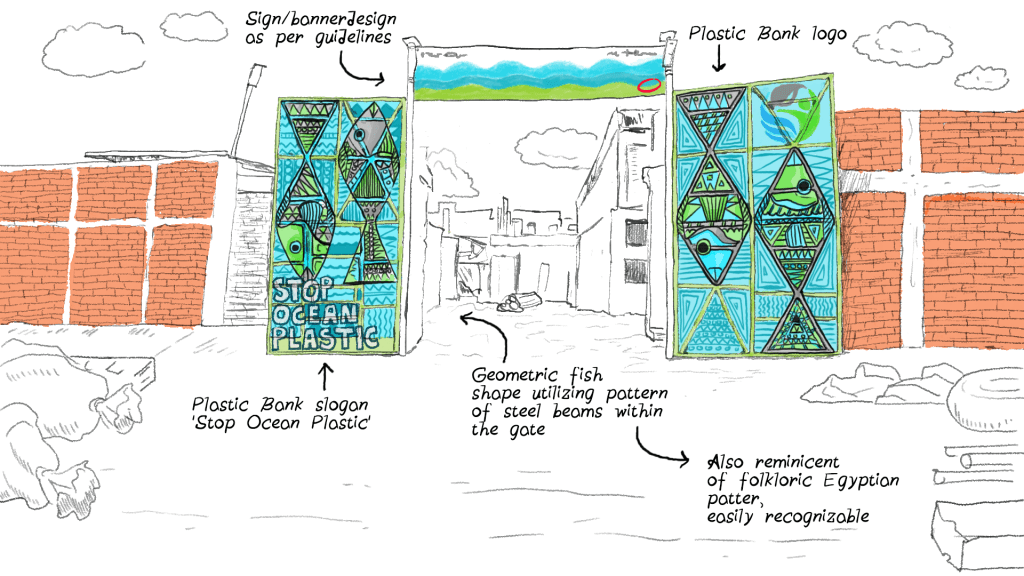 Sign/bannerdesign
as per guidelines
Plastic Bank logo
STOP
OCEAN
PLASTIC
Plastic Bank slogan
'Stop Ocean Plastic'
Geometric fish
shape utilizing pattern
of steel beams within
the gate
Also reminicent
of folkloric Egyptian
patter,
easily recognizable